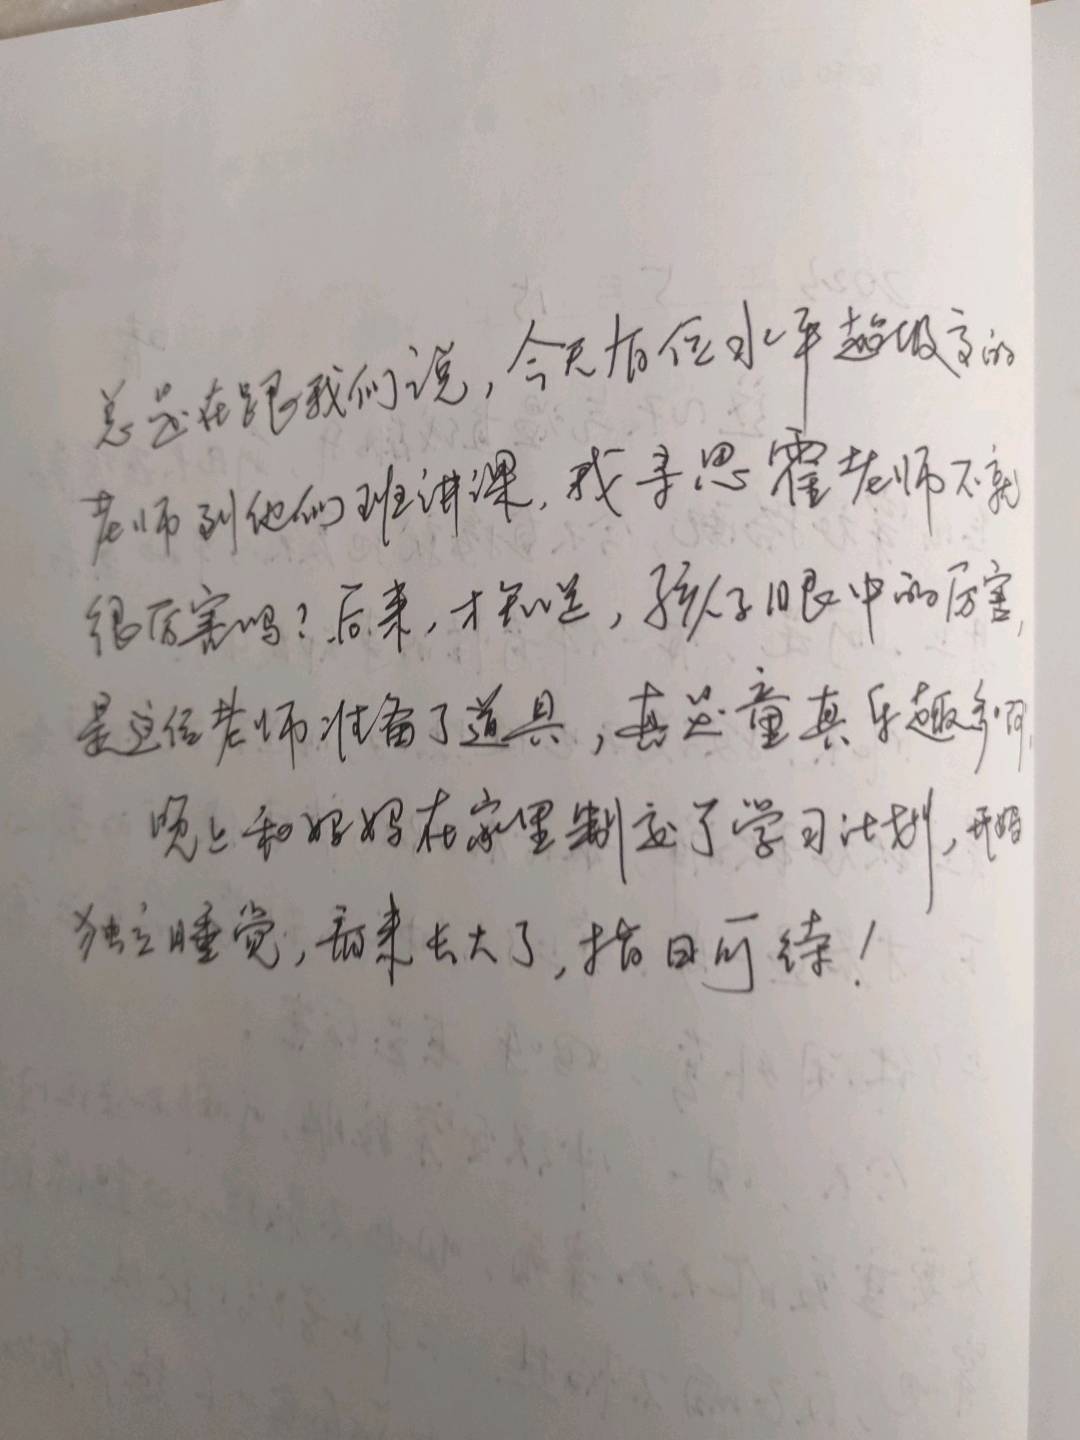 总是在跟我们说，今天有位水平超级高的
老师到他们班讲课，我寻思霍老师不就
很厉害吗？后来，才知道，孩子眼中的厉害，
是这位老师准备了道具，真是童真乐趣多啊，
晚上和妈妈在家里制定了学习计划，开始
独立睡觉，看来长大了，指日可待！